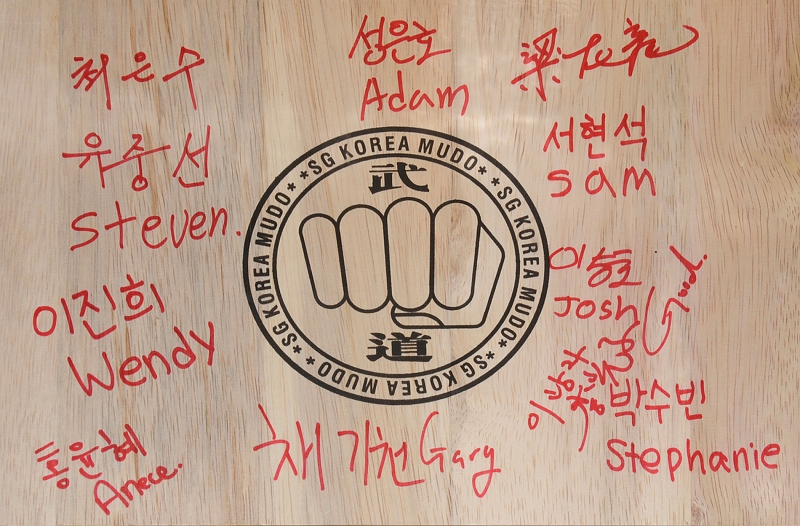 최은수
성은호
Adam
유중선
Steven.
서현석
Sam
*SG KOREA MUDO*
*SG KOREA MUDO*
*SG KOREA MUDO*
*SG KOREA MUDO*
武
道
이진희
Wendy
Josh
Good.
홍윤혜
채기천 Gary
박수빈
Stephanie